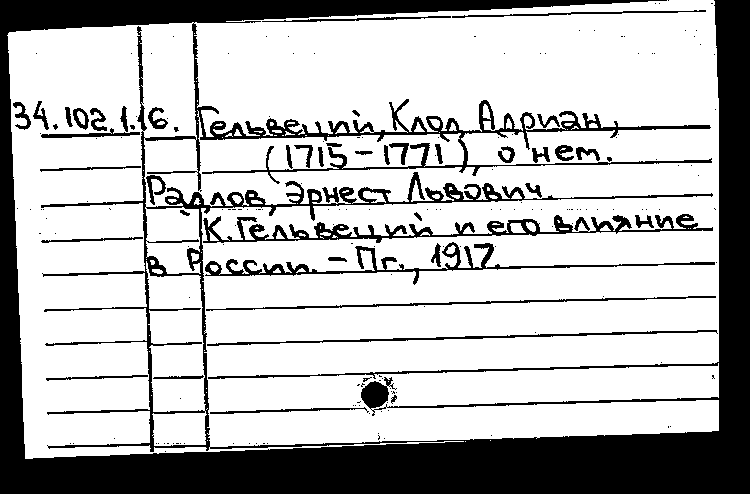 34.102.1.16. Гельвеций, Клод Адриан,
(1715-1771), о нем.
Радлов, Эрнест Львович.
К. Гельвеций и его влияние
в России. - Пг., 1917.